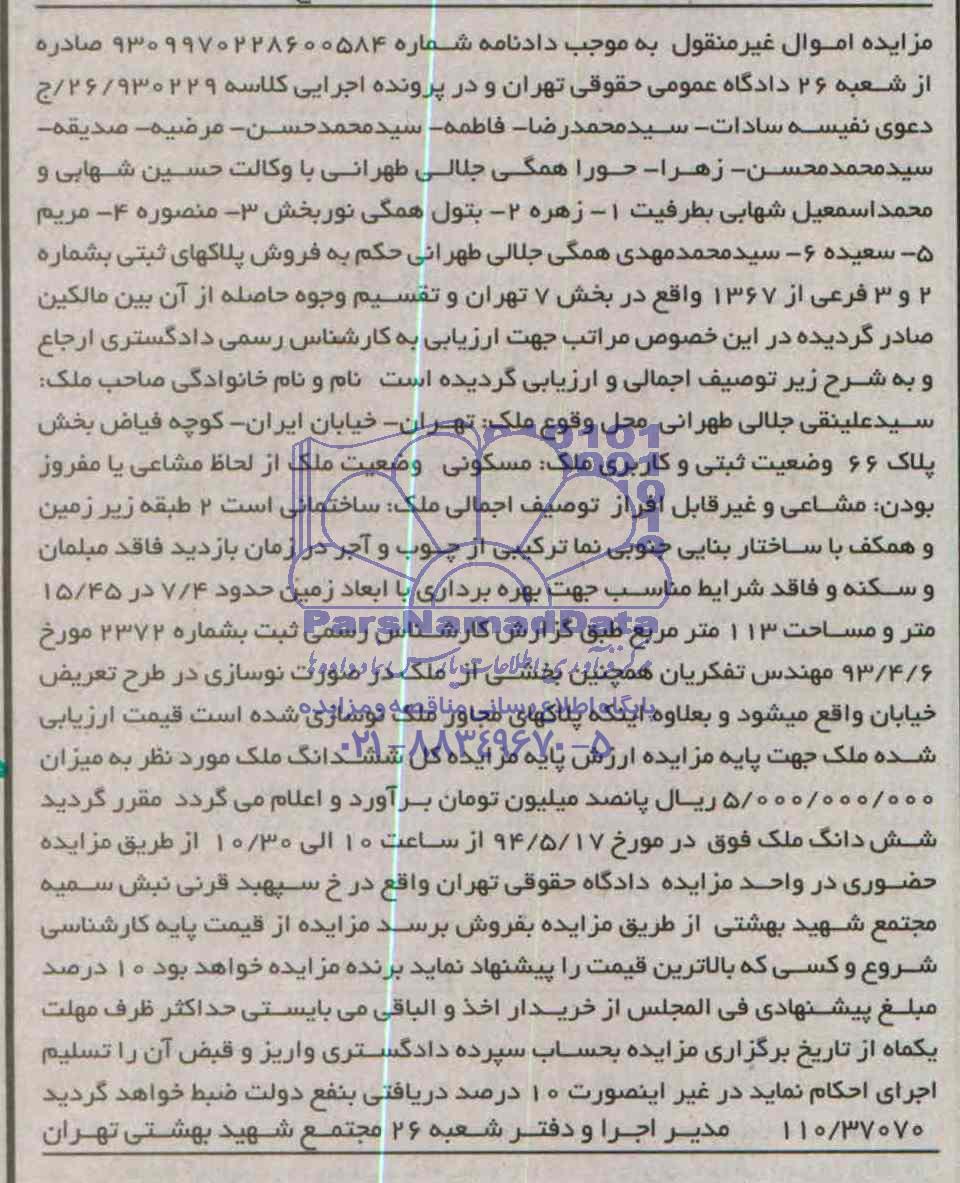 مزایده اموال غیرمنقول به موجب دادنامه شماره ۹۳۰۹۹۷۰۲۲۸۶۰۰۵۸۴ صادره
از شعبه ۲۶ دادگاه عمومی حقوقی تهران و در پرونده اجرایی کلاسه ۲۶/۹۳۰۲۲۹/ج
دعوی نفیسه سادات- سیدمحمدرضا- فاطمه- سیدمحمدحسن- مرضیه- صدیقه-
سیدمحمدمحسن- زهرا- حورا همگی جلالی طهرانی با وکالت حسین شهابی و
محمداسمعیل شهابی بطرفیت ۱- زهره ۲- بتول همگی نوربخش ۳- منصوره ۴- مریم
۵- سعیده ۶- سیدمحمدمهدی همگی جلالی طهرانی حکم به فروش پلاکهای ثبتی بشماره
۲ و ۳ فرعی از ۱۳۶۷ واقع در بخش ۷ تهران و تقسیم وجوه حاصله از آن بین مالکین
صادر گردیده در این خصوص مراتب جهت ارزیابی به کارشناس رسمی دادگستری ارجاع
و به شرح زیر توصیف اجمالی و ارزیابی گردیده است نام و نام خانوادگی صاحب ملک:
سیدعلینقی جلالی طهرانی محل وقوع ملک: تهران- خیابان ایران- کوچه فیاض بخش
پلاک ۶۶ وضعیت ثبتی و کاربری ملک: مسکونی وضعیت ملک از لحاظ مشاعی یا مفروز
بودن: مشاعی و غیرقابل افراز توصیف اجمالی ملک: ساختمانی است ۲ طبقه زیر زمین
و همکف با ساختار بنایی جنوبی نما ترکیبی از چوب و آجر در زمان بازدید فاقد مبلمان
و سکنه و فاقد شرایط مناسب جهت بهره برداری با ابعاد زمین حدود ۷/۴ در ۱۵/۴۵
متر و مساحت ۱۱۳ متر مربع طبق گزارش کارشناس رسمی ثبت بشماره ۲۳۷۲ مورخ
۹۳/۴/۶ مهندس تفکریان همچنین بخشی از ملک در صورت نوسازی در طرح تعریض
خیابان واقع میشود و بعلاوه اینکه پلاکهای مجاور ملک نوسازی شده است قیمت ارزیابی
شده ملک جهت پایه مزایده ارزش پایه مزایده کل ششدانگ ملک مورد نظر به میزان
۵/۰۰۰/۰۰۰/۰۰۰ ریال پانصد میلیون تومان برآورد و اعلام می گردد مقرر گردید
شش دانگ ملک فوق در مورخ ۹۴/۵/۱۷ از ساعت ۱۰ الی ۱۰/۳۰ از طریق مزایده
حضوری در واحد مزایده دادگاه حقوقی تهران واقع در خ سپهبد قرنی نبش سمیه
مجتمع شهید بهشتی از طریق مزایده بفروش برسد مزایده از قیمت پایه کارشناسی
شروع و کسی که بالاترین قیمت را پیشنهاد نماید برنده مزایده خواهد بود ۱۰ درصد
مبلغ پیشنهادی فی المجلس از خریدار اخذ و الباقی می بایستی حداکثر ظرف مهلت
یکماه از تاریخ برگزاری مزایده بحساب سپرده دادگستری واریز و قبض آن را تسلیم
اجرای احکام نماید در غیر اینصورت ۱۰ درصد دریافتی بنفع دولت ضبط خواهد گردید
۱۱۰/۳۷۰۷۰ مدیر اجرا و دفتر شعبه ۲۶ مجتمع شهید بهشتی تهران
ParsNamadData
پایگاه اطلاع رسانی مناقصه و مزایده
۰۲۱-۸۸۳۴۹۶۷۰-۵